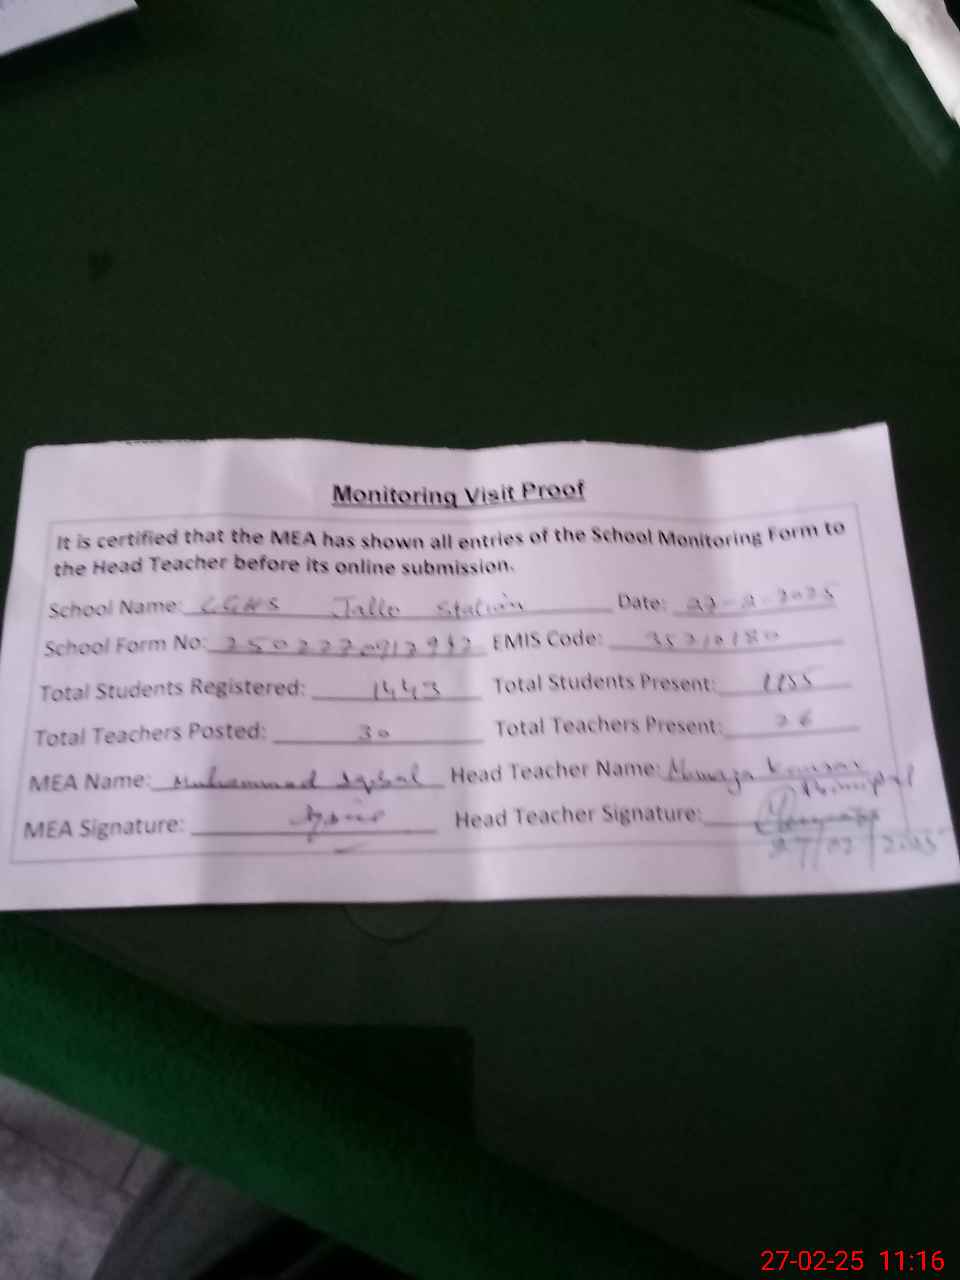 Monitoring Visit Proof
It is certified that the MEA has shown all entries of the School Monitoring Form to
the Head Teacher before its online submission.
School Name: Jallo Station Date: 27-2-2025
School Form No: EMIS Code: 35210180
Total Students Registered: 1443 Total Students Present: 1155
Total Teachers Posted: 30 Total Teachers Present: 26
MEA Name: Muhammad Iqbal Head Teacher Name:
Principal
MEA Signature: Head Teacher Signature:
27/02/2025
27-02-25 11:16